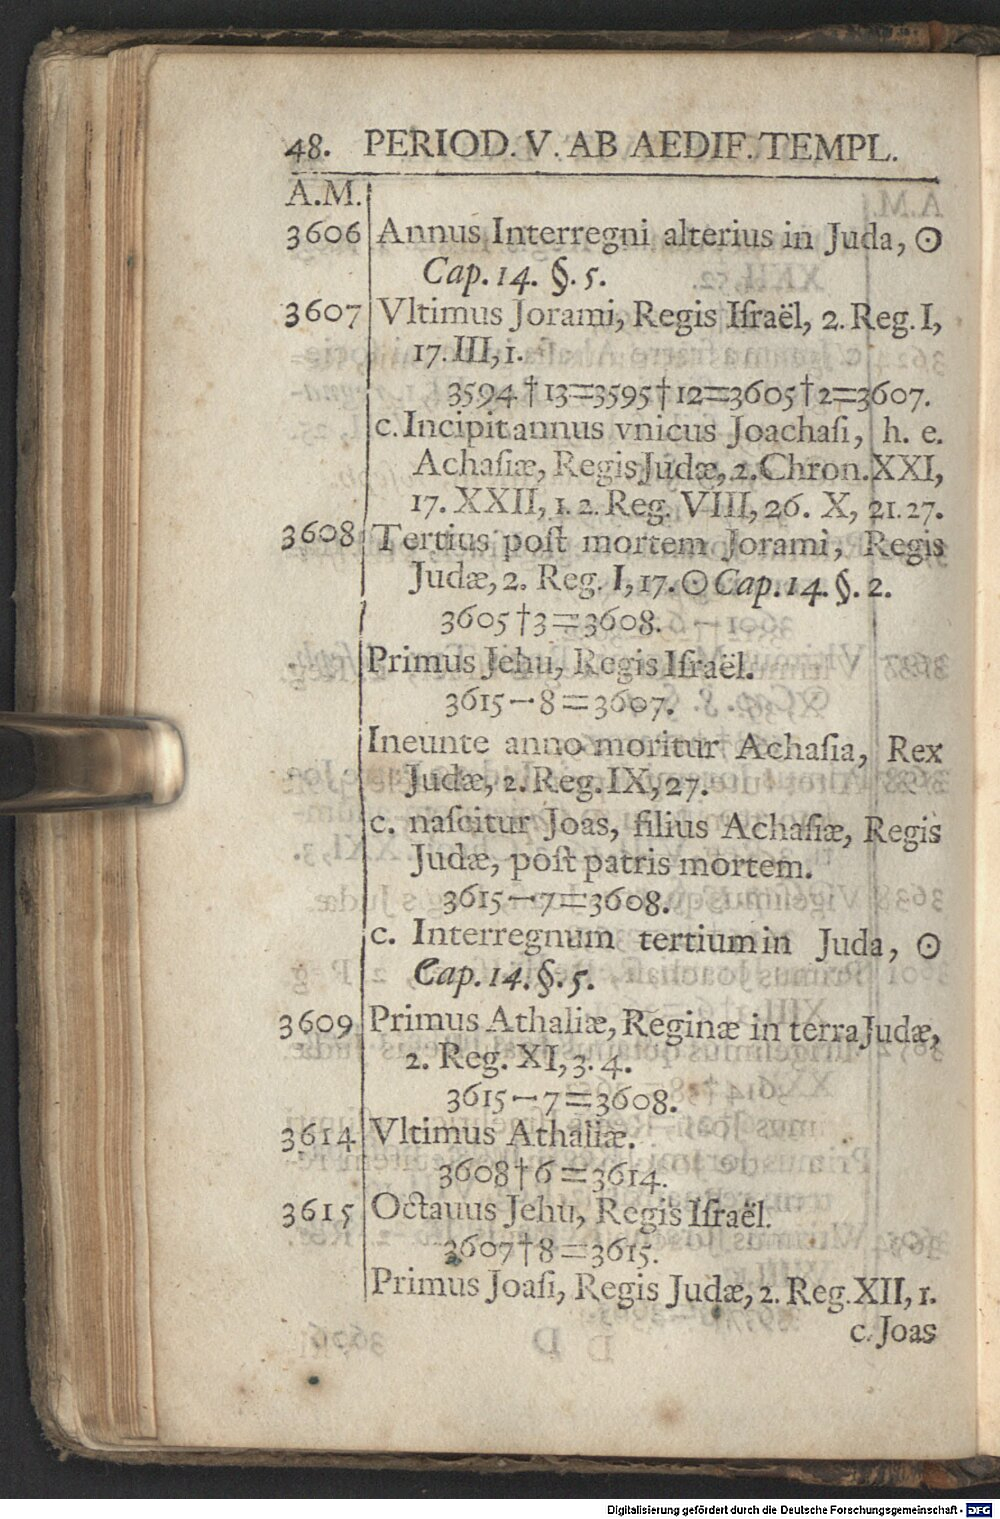 48. PERIOD. V. AB AEDIF. TEMPL.
A.M.
3606 Annus Interregni alterius in Juda, ☉
Cap. 14. §. 5.
3607 Vltimus Jorami, Regis Iſraël, 2. Reg. I,
17. III, 1.
3594 † 13=3595 † 12=3605 † 2=3607.
c. Incipit annus vnicus Joachaſi, h. e.
Achaſiæ, Regis Judæ, 2. Chron. XXI,
17. XXII, 1. 2. Reg. VIII, 26. X, 21. 27.
3608 Tertius poſt mortem Jorami, Regis
Judæ, 2. Reg. I, 17. ☉ Cap. 14. §. 2.
3605 † 3=3608.
Primus Jehu, Regis Iſraël.
3615−8=3607.
Ineunte anno moritur Achaſia, Rex
Judæ, 2. Reg. IX, 27.
c. naſcitur Joas, filius Achaſiæ, Regis
Judæ, poſt patris mortem.
3615−7=3608.
c. Interregnum tertium in Juda, ☉
Cap. 14. §. 5.
3609 Primus Athaliæ, Reginæ in terra Judæ,
2. Reg. XI, 3. 4.
3615−7=3608.
3614 Vltimus Athaliæ.
3608 † 6=3614.
3615 Octauus Jehu, Regis Iſraël.
3607 † 8=3615.
Primus Joaſi, Regis Judæ, 2. Reg. XII, 1.
c. Joas
Digitalisierung gefördert durch die Deutsche Forschungsgemeinschaft - DFG